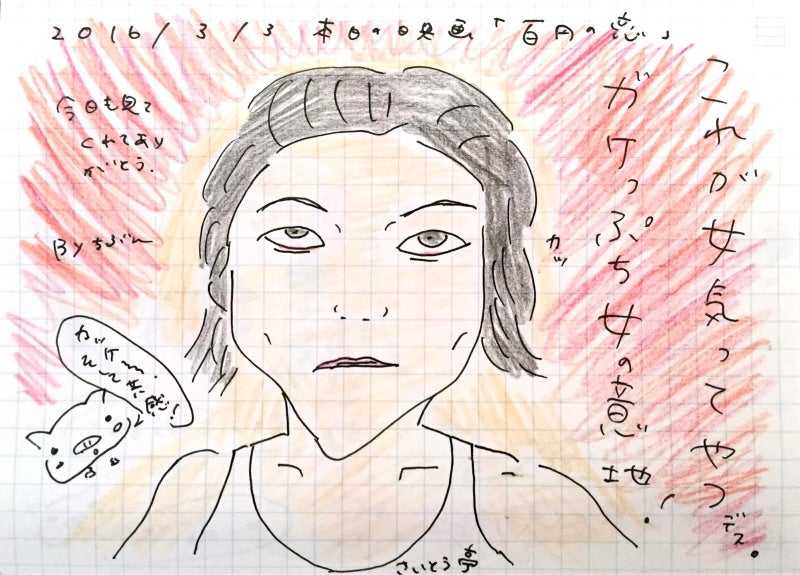 2016/3/3 本日の映画「百円の恋」
「これが女気ってやつデス。
ガケっぷち女の意地」
カッ
今日も見て
くれてあり
がとう.
By
共感!
さいとう